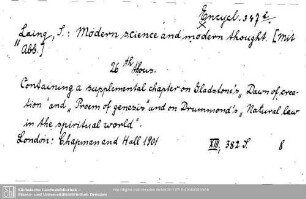 Encycl. 347 t
Laing, S.: Modern science and modern thought. [Mit
Abb.]
26th thous.
Containing a supplemental chapter on Gladstone's „Dawn of crea-
tion" and „Proem of genesis" and on Drummond's „Natural law
in the spiritual world".
London: Chapman and Hall 1901
XII, 382 S.
8